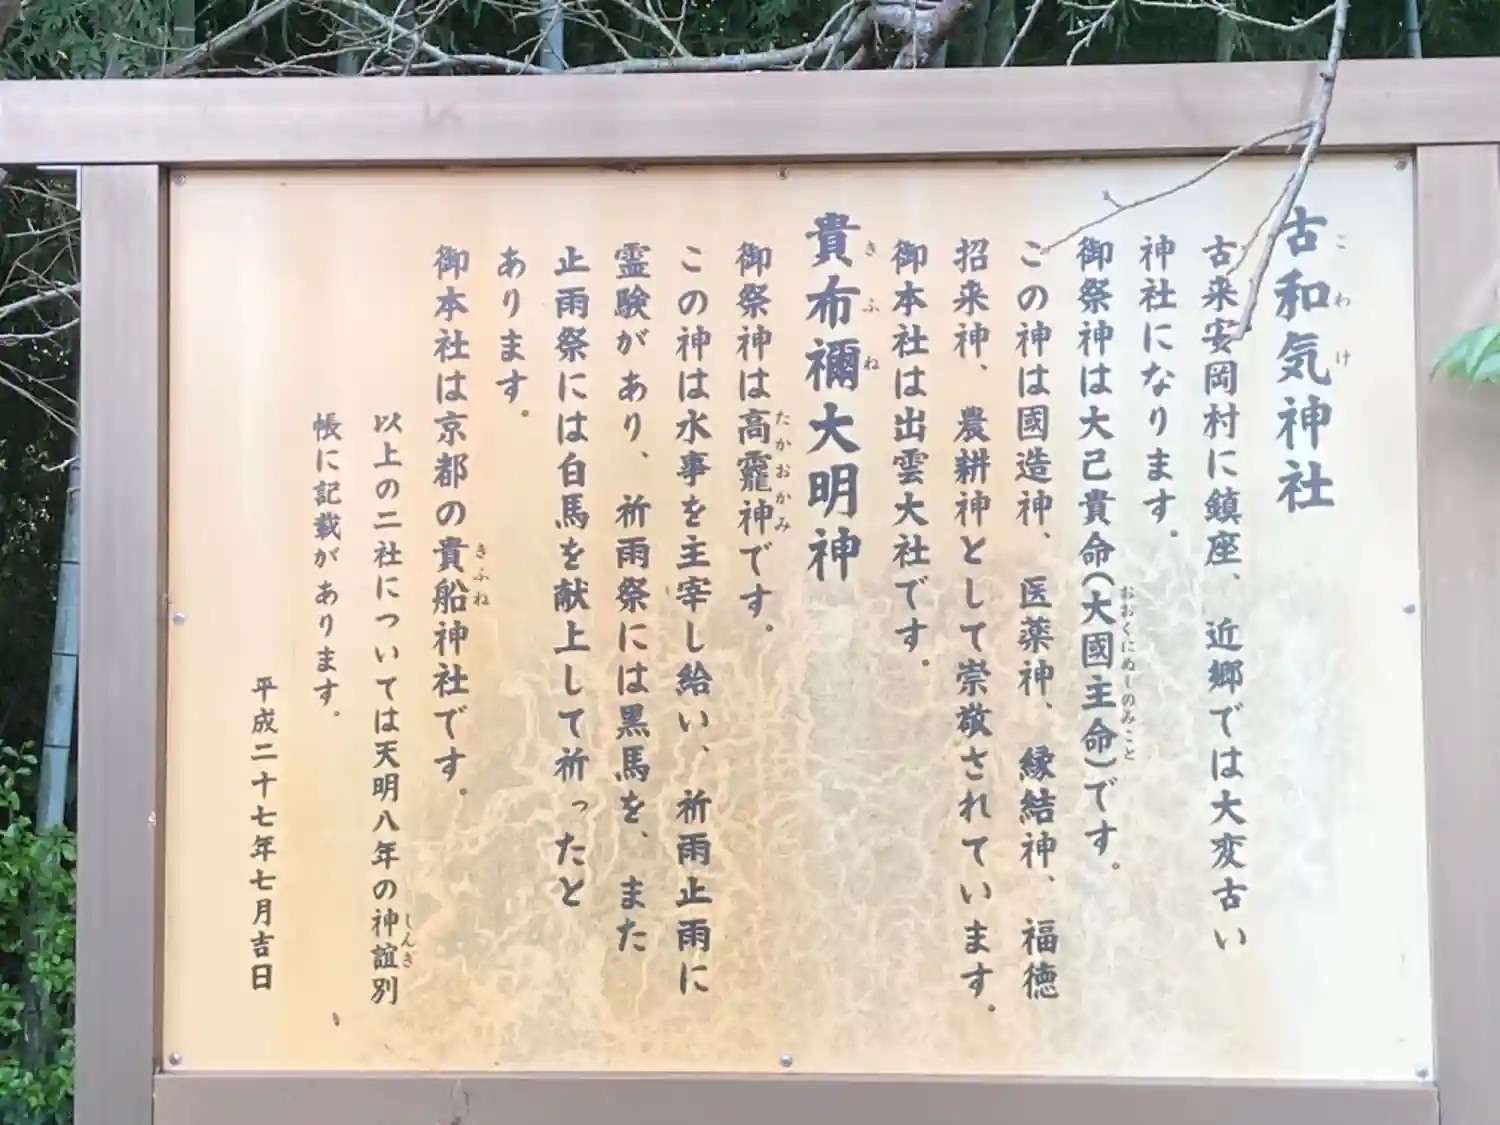 古和気神社
こわけ
古来安岡村に鎮座、近郷では大変古い
神社になります。
御祭神は大己貴命(大國主命)です。
おおくにぬしのみこと
この神は國造神、医薬神、縁結神、福徳
招来神、農耕神として崇敬されています。
御本社は出雲大社です。
貴布禰大明神
きふね
御祭神は高龗神です。
たかおかみ
この神は水事を主宰し給い、祈雨止雨に
霊験があり、祈雨祭には黒馬を、また
止雨祭には白馬を献上して祈ったと
あります。
御本社は京都の貴船神社です。
きふね
以上の二社については天明八年の神誼別
しんぎ
帳に記載があります。
平成二十七年七月吉日